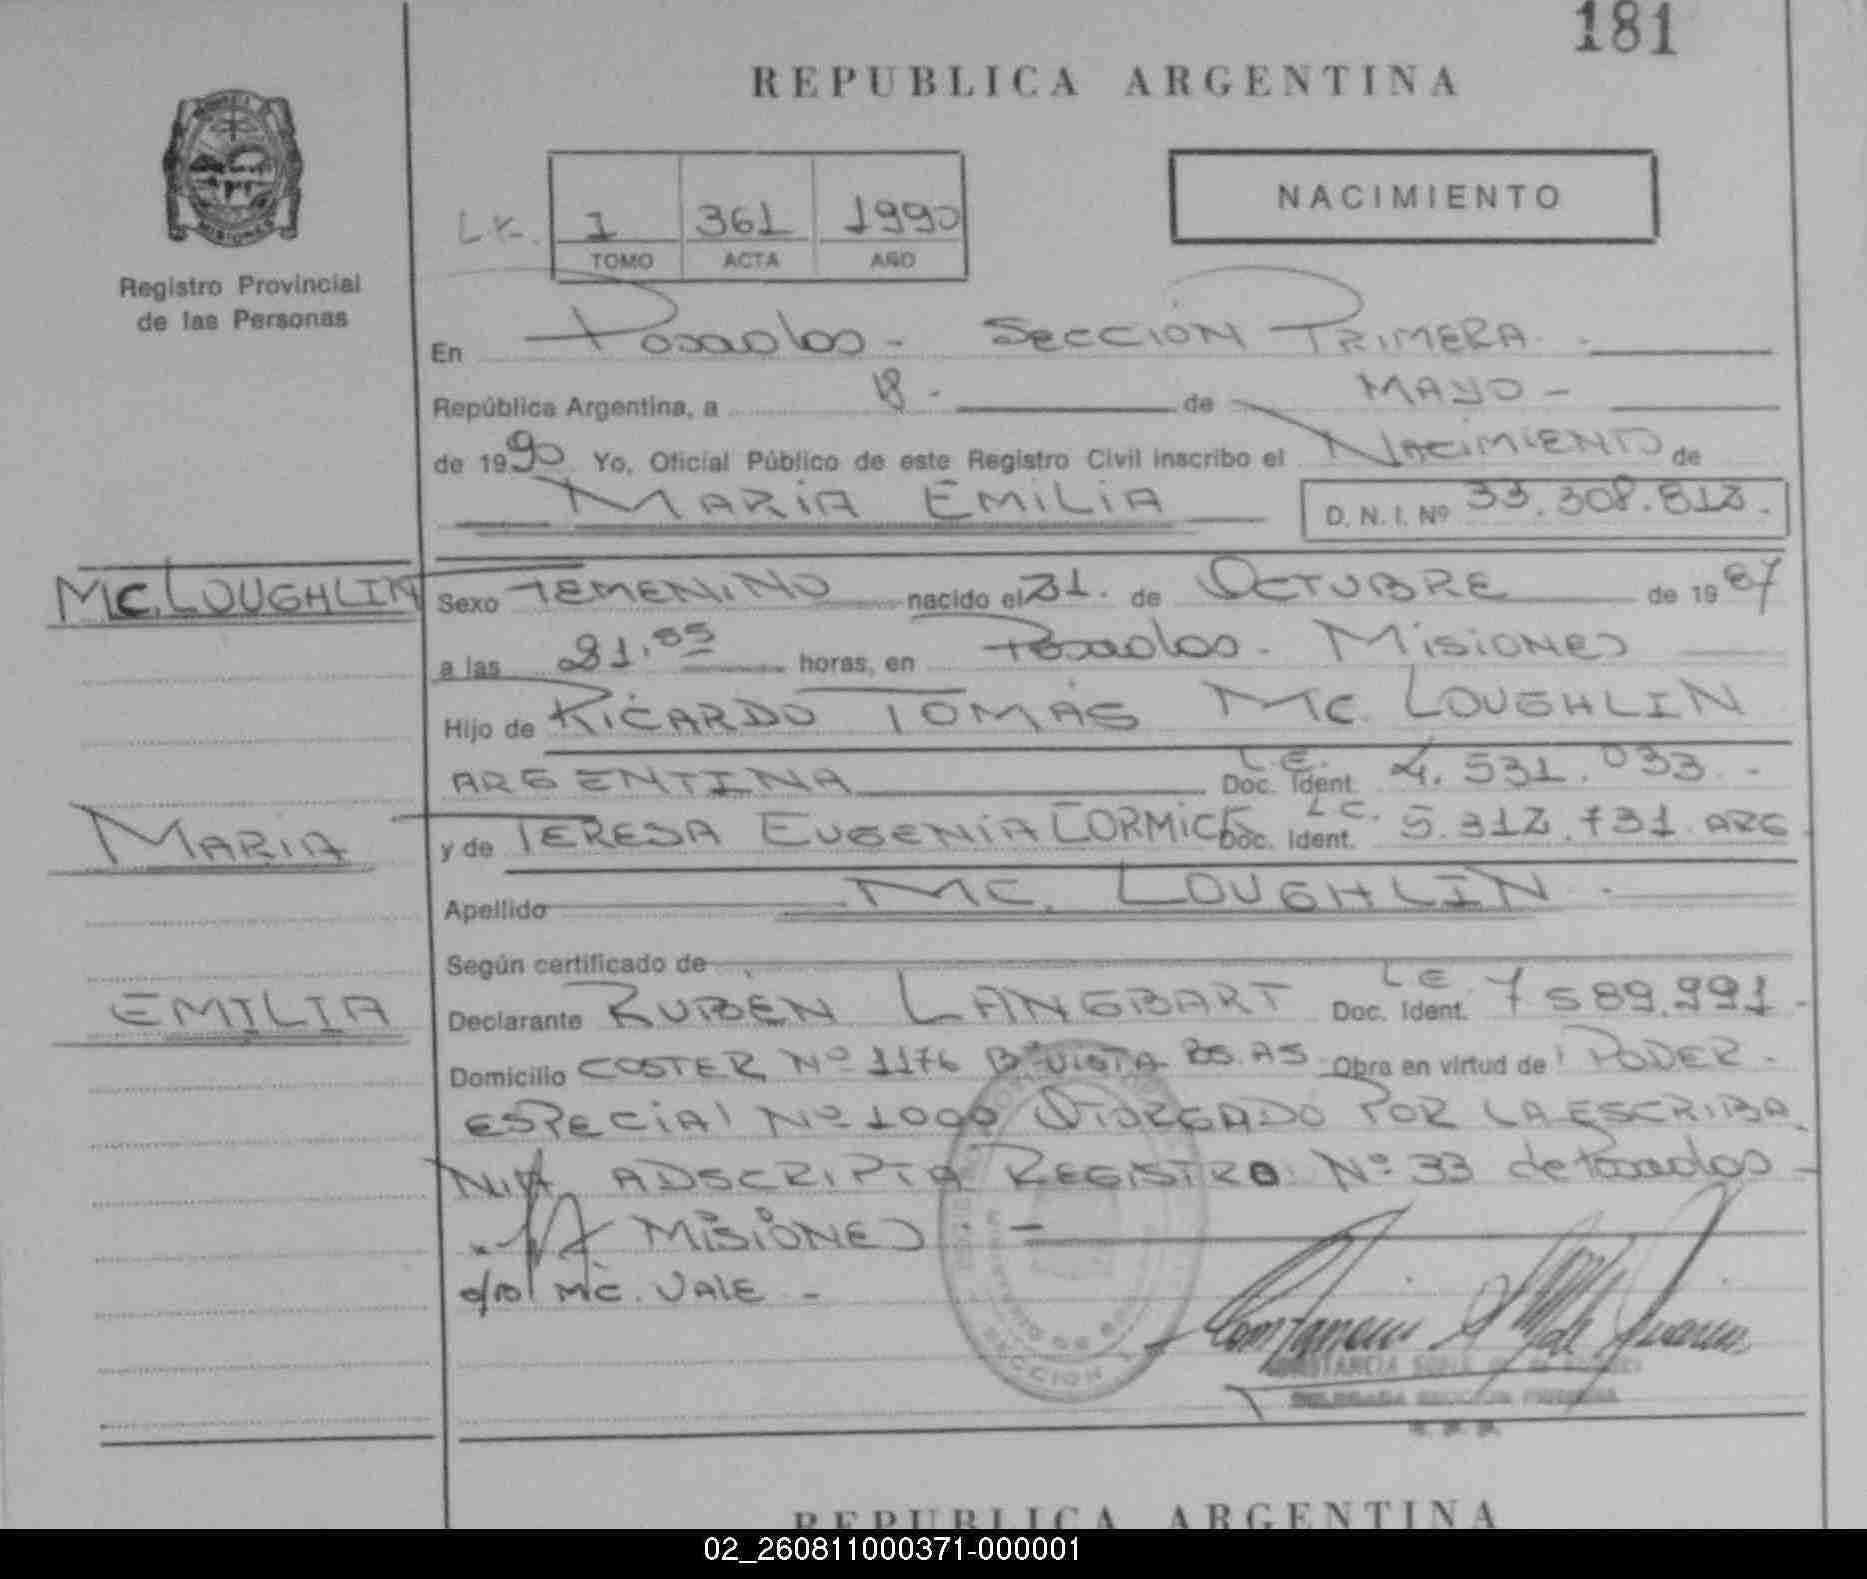 181
REPUBLICA ARGENTINA
NACIMIENTO
1 361 1990
TOMO ACTA AÑO
MISIONES
Registro Provincial
de las Personas
En Posadas - SECCION PRIMERA.
República Argentina, a 18 - de MAYO -
de 1990 Yo, Oficial Público de este Registro Civil inscribo el NACIMIENTO de
MARIA EMILIA D. N. I. Nº 33.308.812.
MC. LOUGHLIN
Sexo FEMENINO nacido el 31. de OCTUBRE de 1987
a las 21,55 horas, en Posadas - MISIONES
Hijo de RICARDO TOMÁS MC. LOUGHLIN
ARGENTINA L.E. Doc. Ident. 4.531.033. -
MARIA
y de TERESA EUGENIA CORMICK L.C. Doc. Ident. 5.312.731 ARG
Apellido MC. LOUGHLIN
Según certificado de
EMILIA
Declarante RUBÉN LANGBART L.E. Doc. Ident. 7589.991 -
Domicilio COSTER Nº 1176 B. VISTA BS. AS Obra en virtud de PODER -
ESPECIAL Nº 1000 OTORGADO POR LA ESCRIBA
NIA ADSCRIPTA REGISTRO Nº 33 de Posadas -
MISIONES -
MC. VALE -
SECCION
REPUBLICA ARGENTINA
02_260811000371-000001